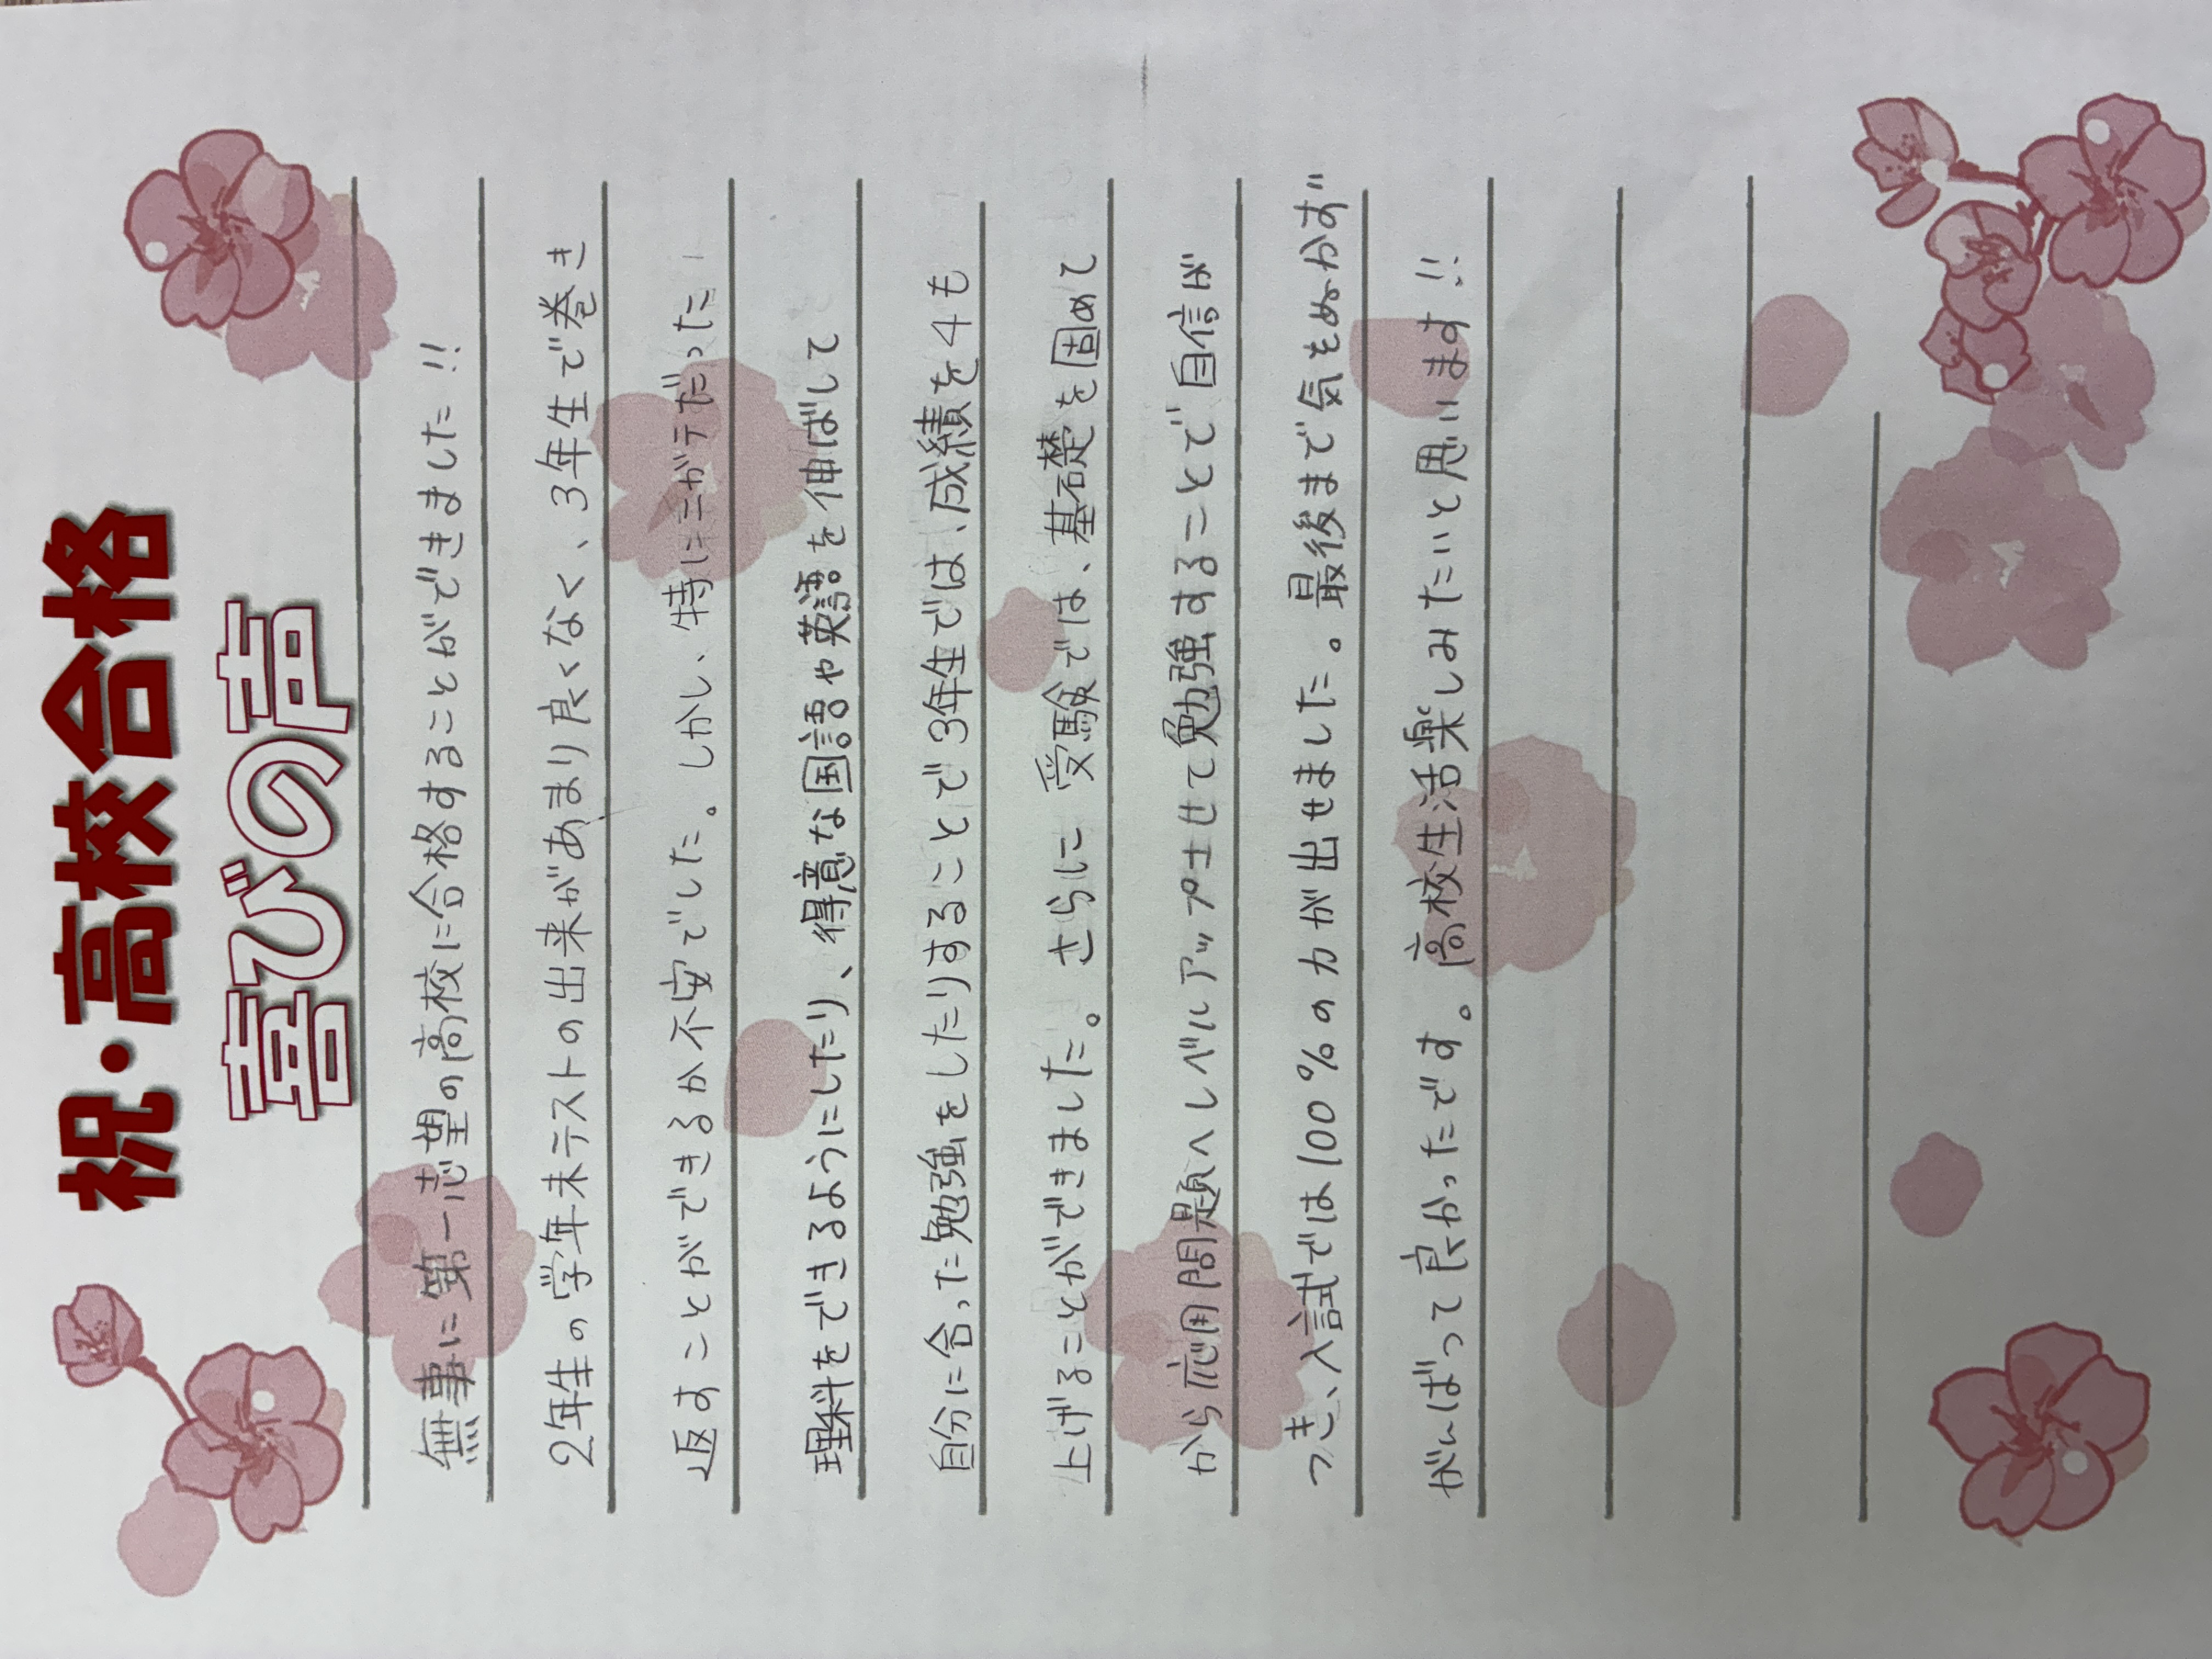 祝・高校合格
喜びの声
無事に第一志望の高校に合格することができました!!
2年生の学年末テストの出来があまり良くなく、3年生で巻き
返すことができるか不安でした。しかし、特にニガテだった
理科をできるようにしたり、得意な国語や英語を伸ばして
自分に合った勉強をしたりすることで3年生では、成績を4も
上げることができました。さらに受験では、基礎を固めて
から応用問題へレベルアップさせて勉強することで自信が
つき、入試では100%の力が出せました。最後まで気をぬかず
がんばって良かったです。高校生活楽しみたいと思います!!